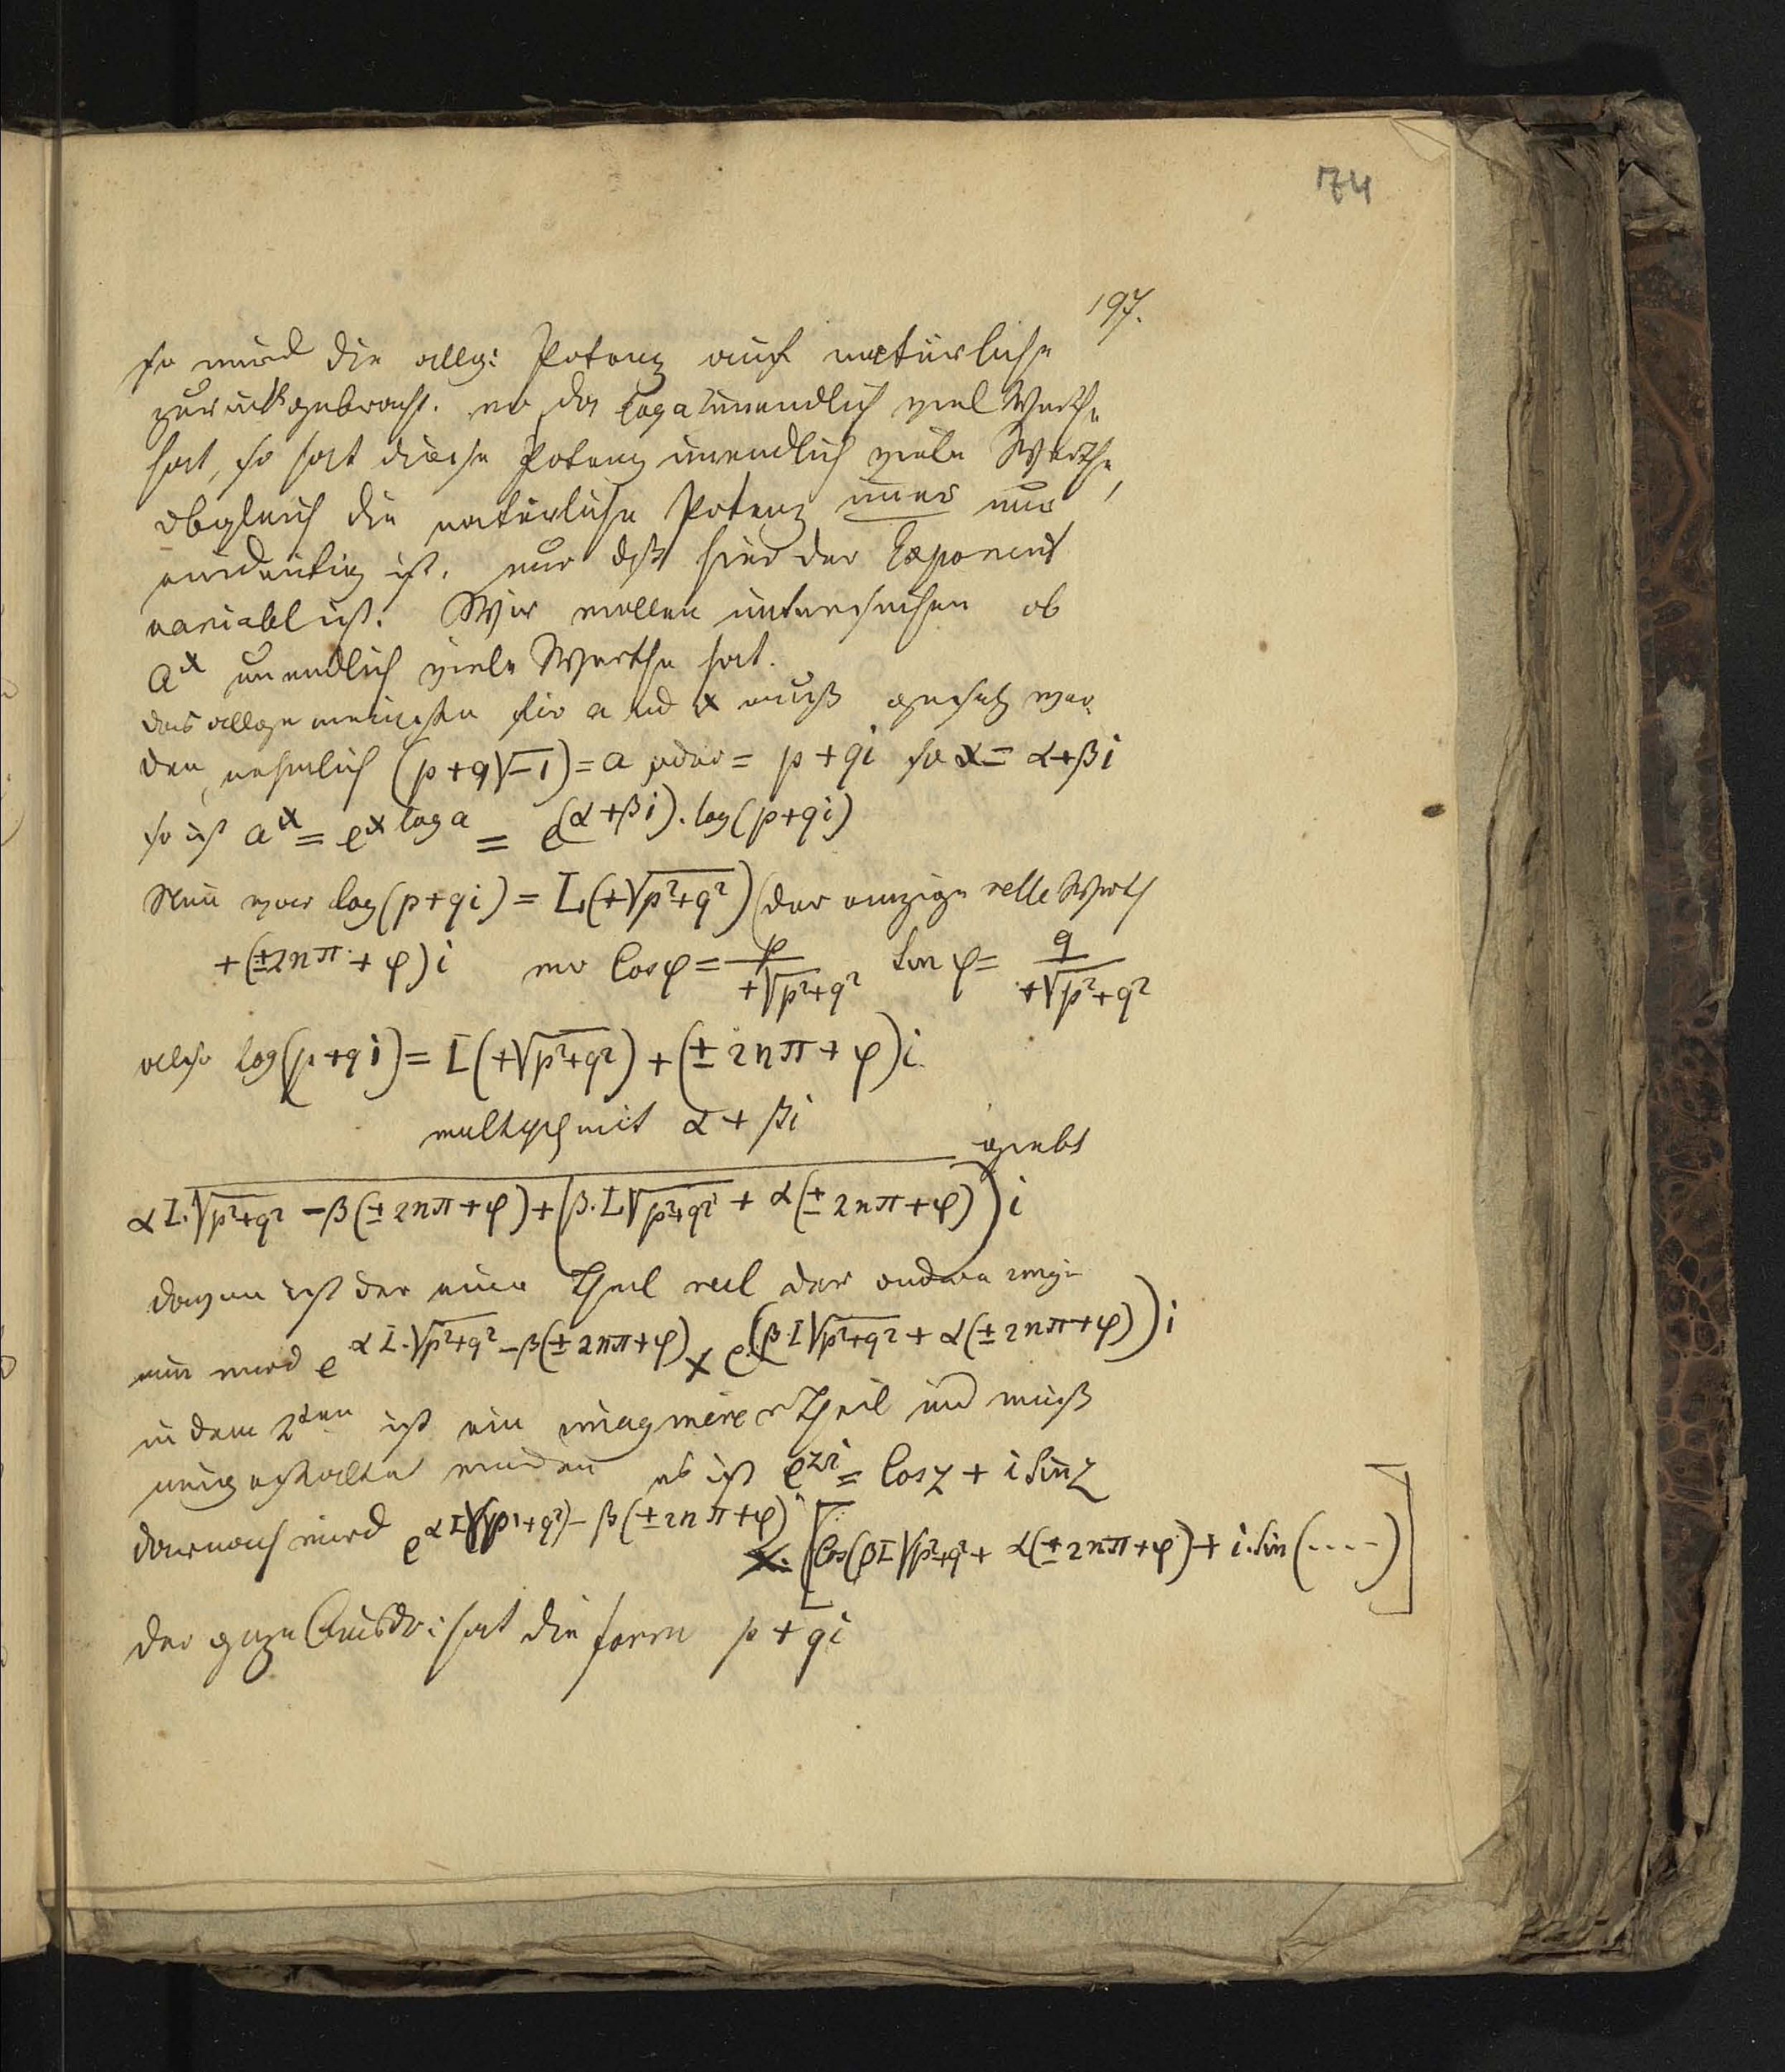 74
197.
so wird die allg: Potenz auf natürliche
zurückgebracht. wo da log a unendlich viel Werthe
hat, so hat diese Potenz unendlich viele Werthe,
obgleich die natürliche Potenz immer nur
eindeutig ist. nur daß hier der Exponent
variabl ist. Wir wollen untersuchen ob
a^x unendlich viele Werthe hat.
das allgemeinste für a und x muß gesetzt wer-
den, nehmlich (p+q√−1) = a oder = p+qi so x = α+βi
so ist a^x = e^{x log a} = e^{(α+βi).log(p+qi)}
Nun war log(p+qi) = L(+√p²+q²) (der einzige relle Werth
+(±2nπ+φ)i wo Cosφ = p/+√p²+q² Sin φ = q/+√p²+q²
also log(p+qi) = L(+√p²+q²) + (±2nπ+φ)i
mit α+βi
giebt
αL.√p²+q² −β(±2nπ+φ)+(β.L√p²+q² + α(±2nπ+φ))i
davon ist der eine Theil reel der andere imag:
nun wird e^{αL.√p²+q² −β(±2nπ+φ)} × e^{(β.L√p²+q² + α(±2nπ+φ))i}
in dem 2ten ist ein imaginärer Theil und muß
umgestaltet werden es ist e^{zi} = Cos z + i Sin z
darnach wird e^{αL√(p²+q²) − β(±2nπ+φ)} . [Cos(βL√p²+q² + α(±2nπ+φ) + i.Sin(....)]
der ganze Ausdr: hat die form p+qi